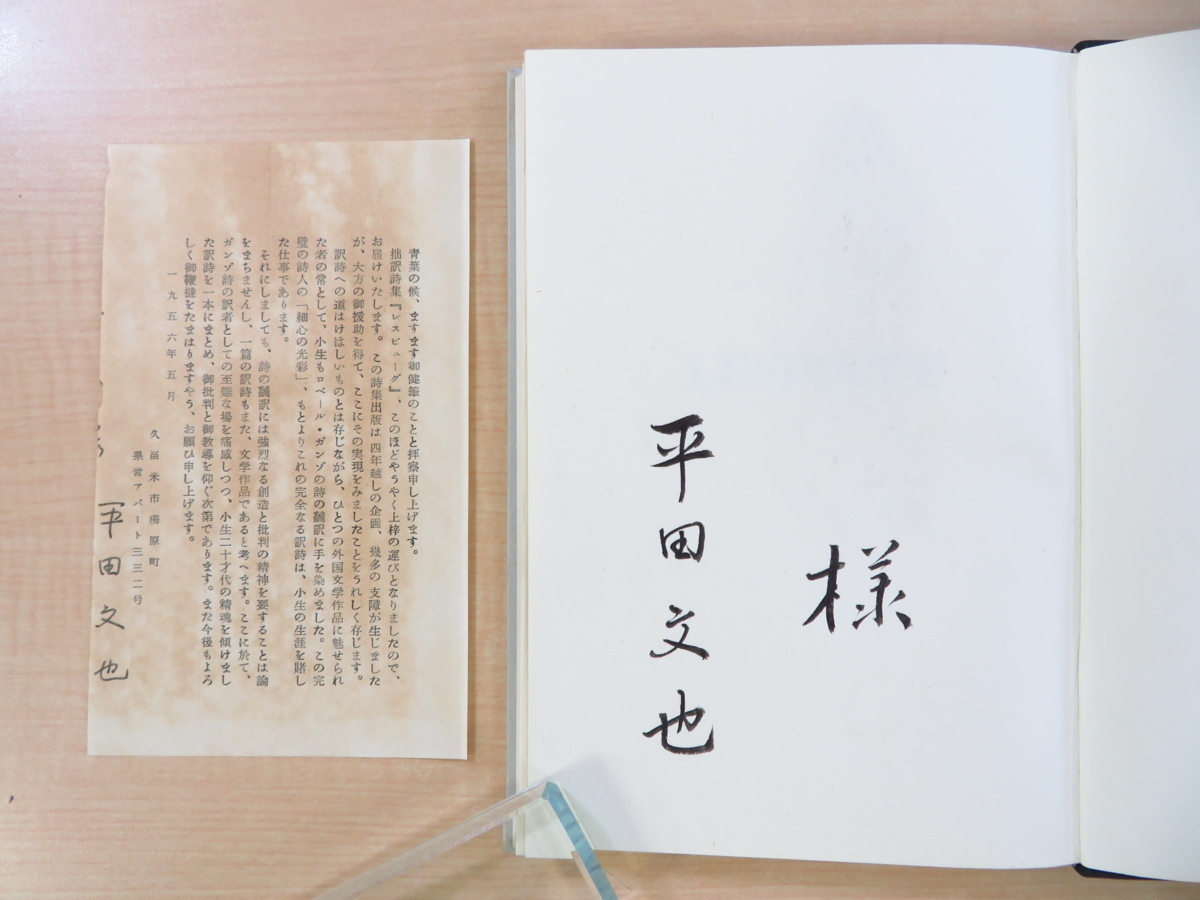 青葉の候、ますます御健筆のことと拝察申し上げます。
拙訳詩集『レスピューグ』、このほどやうやく上梓の運びとなりましたので、
お届けいたします。この詩集出版は四年越しの企画、幾多の支障が生じました
が、大方の御援助を得て、ここにその実現をみましたことをうれしく存じます。
訳詩への道はけはしいものとは存じながら、ひとつの外国文学作品に魅せられ
た者の常として、小生もロベール・ガンゾの詩の飜訳に手を染めました。この完
璧の詩人の「細心の光彩」、もとよりこれの完全なる訳詩は、小生の生涯を賭し
た仕事であります。
それにしましても、詩の飜訳には強烈なる創造と批判の精神を要することは論
をまちませんし、一篇の訳詩もまた、文学作品であると考へます。ここに於て、
ガンゾ詩の訳者としての至難な場を痛感しつつ、小生二十才代の精魂を傾けまし
た訳詩を一本にまとめ、御批判と御教導を仰ぐ次第であります。また今後もよろ
しく御鞭撻をたまはりますやう、お願ひ申し上げます。
一九五六年五月
久留米市櫛原町
県営アパート三三二号
平田文也
様
平田文也